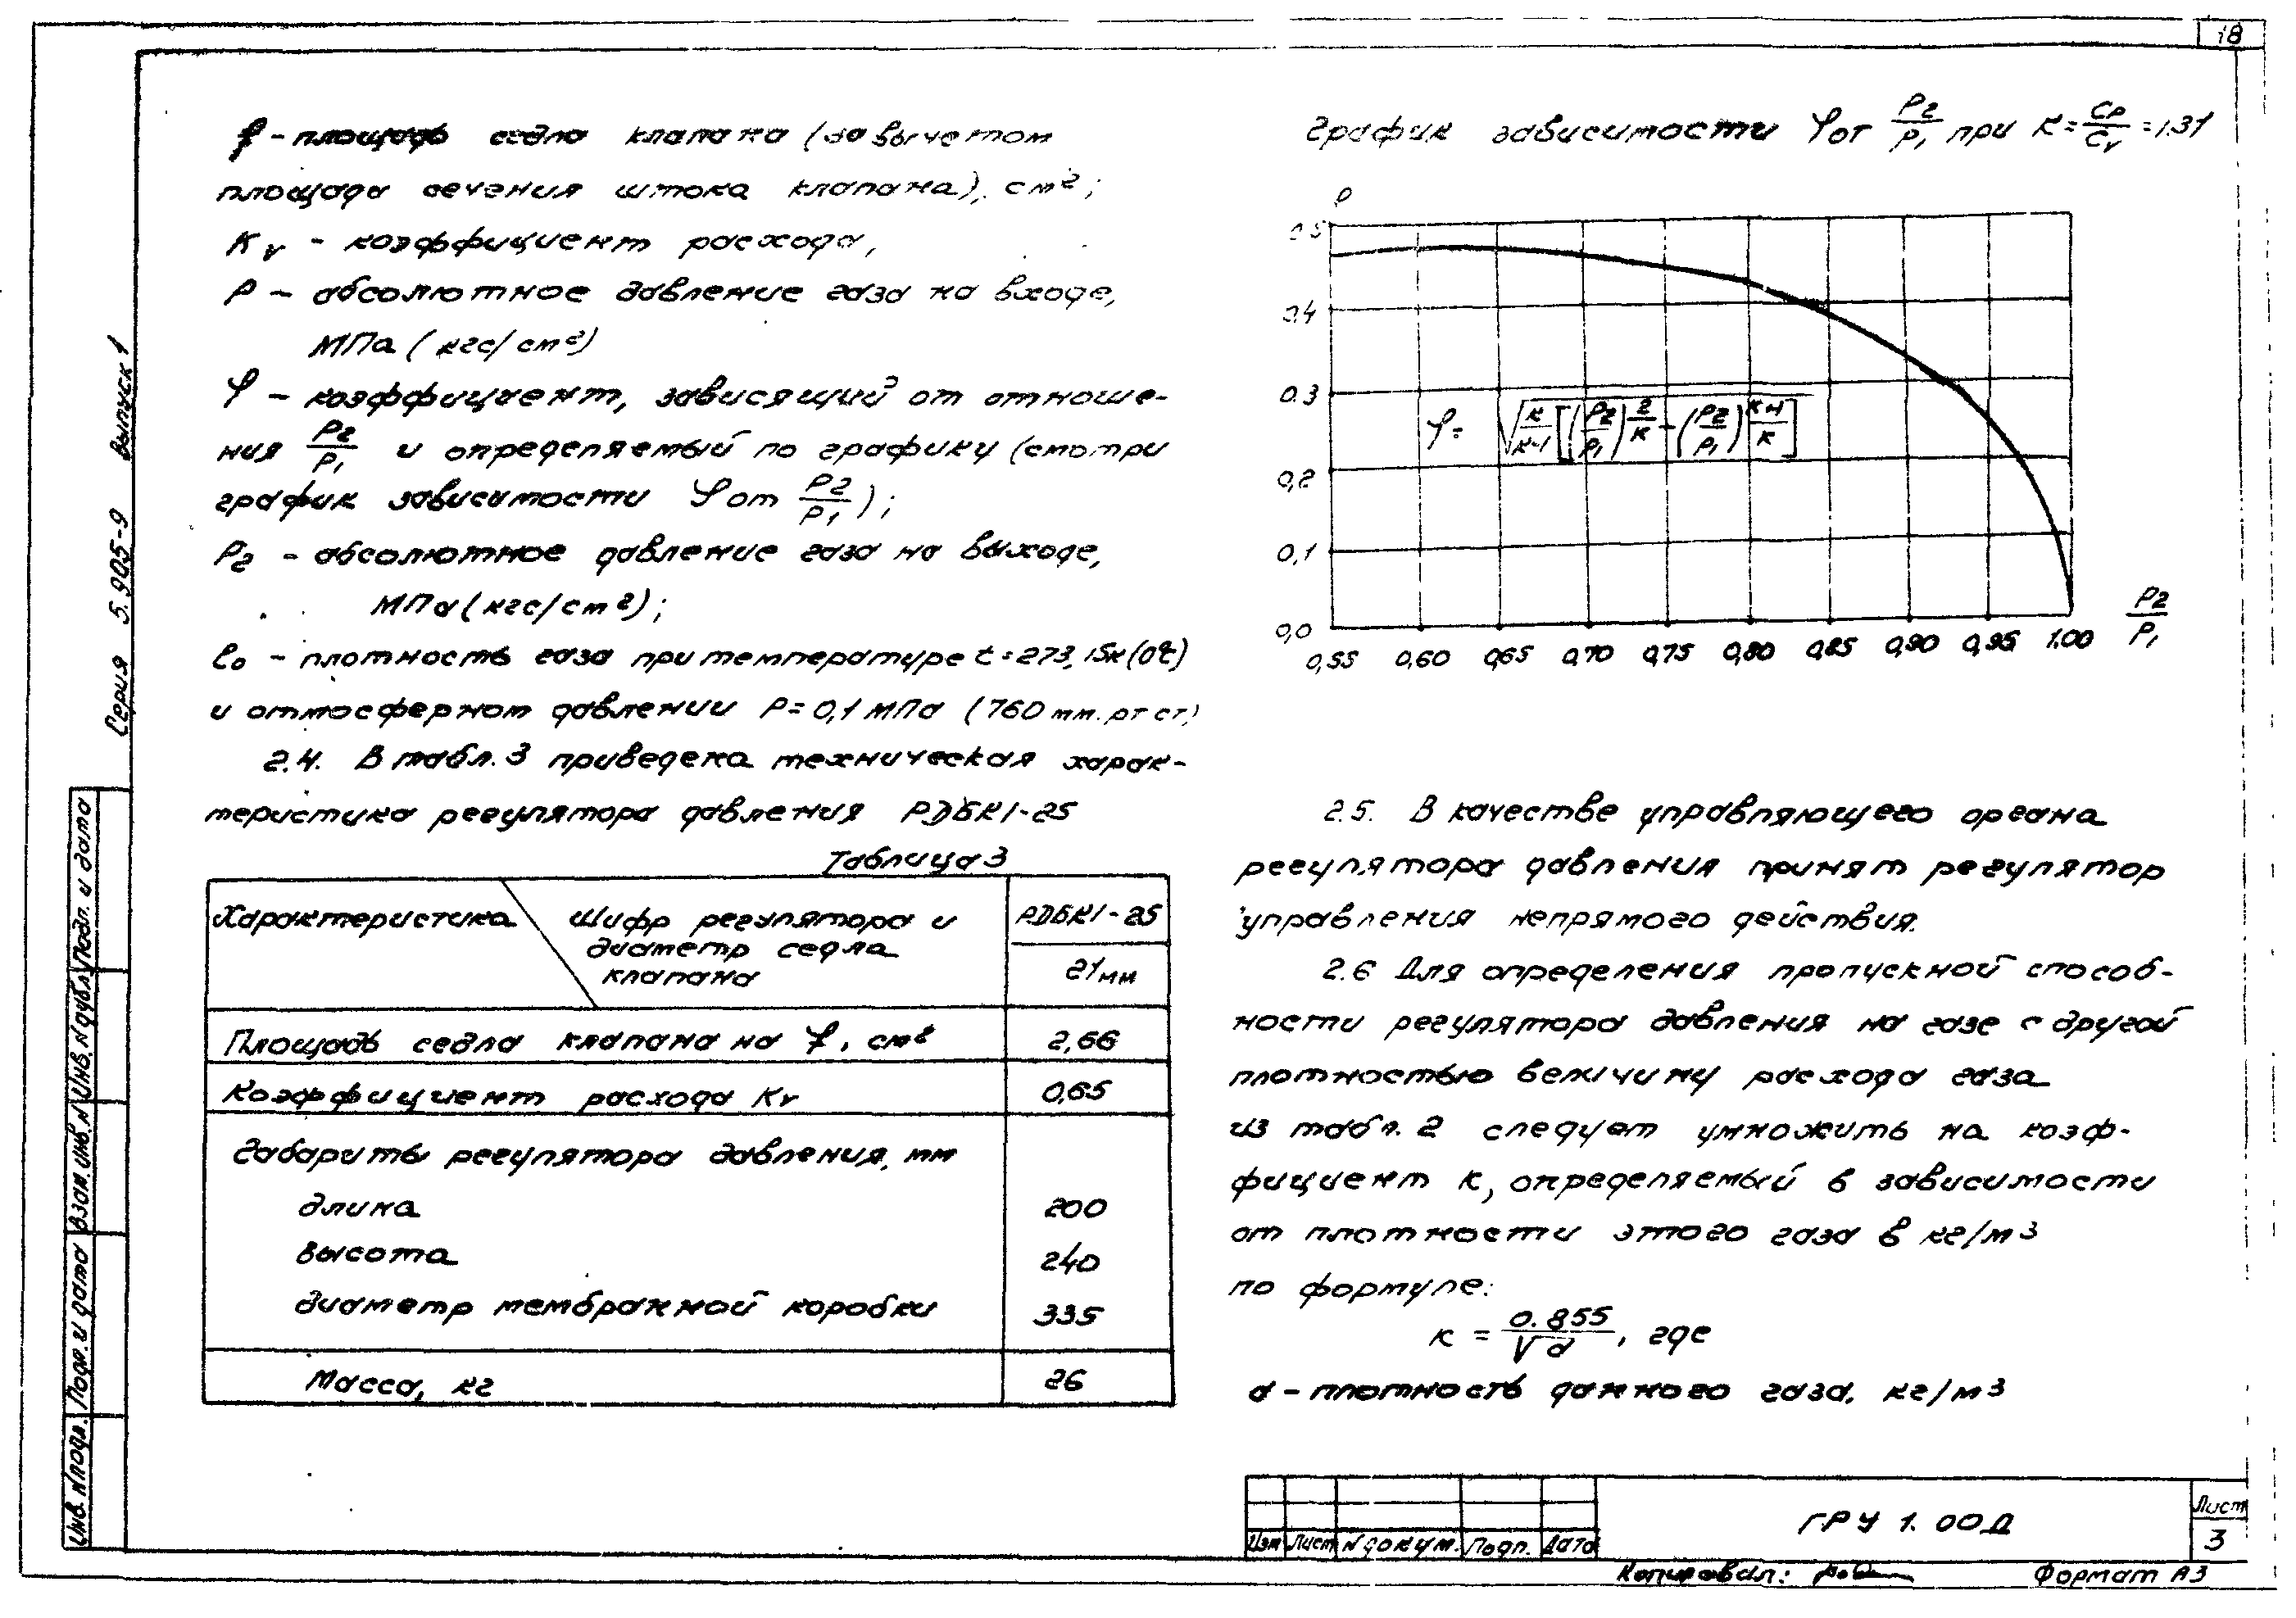 18
f - площадь седла клапана (за вычетом
площади сечения штока клапана), см²;
Kv - коэффициент расхода,
P - абсолютное давление газа на входе,
МПа (кгс/см²)
φ - коэффициент, зависящий от отноше-
ния P2/P1 и определяемый по графику (смотри
график зависимости φ от P2/P1);
P2 - абсолютное давление газа на выходе,
МПа (кгс/см²);
ρ0 - плотность газа при температуре t=273,15К (0℃)
и атмосферном давлении P=0,1 МПа (760 мм.рт ст)
2.4. В табл. 3 приведена техническая харак-
теристика регулятора давления РДБК1-25
Таблица 3
Характеристика Шифр регулятора и РДБК1-25
диаметр седла
клапана 21мм
Площадь седла клапана на f, см² 2,66
Коэффициент расхода Kv 0,65
Габариты регулятора давления, мм
длина 200
высота 240
диаметр мембранной коробки 335
Масса, кг 26
График зависимости φ от P2/P1 при K=Cp/Cv=1.31
φ
0.5
0.4
0.3
φ= √(K/(K-1)[(P2/P1)^(2/K)-(P2/P1)^((K+1)/K)])
0,2
0,1
0,0
0,55 0,60 0,65 0,70 0,75 0,80 0,85 0,90 0,95 1.00 P2/P1
2.5. В качестве управляющего органа
регулятора давления принят регулятор
управления непрямого действия.
2.6 Для определения пропускной способ-
ности регулятора давления на газе с другой
плотностью величину расхода газа
из табл. 2 следует умножить на коэф-
фициент К, определяемый в зависимости
от плотности этого газа в кг/м3
по формуле:
к = 0.855/√d, где
d - плотность данного газа. кг/м3
Серия 5.905-9 Выпуск 1
Инв. N подл. Подп. и дата Взам. инв. N Инв. N дубл. Подп. и дата
Изм Лист N докум. Подп. Дата
ГРУ 1. 00Д
Лист
3
Копировал:
Формат А3